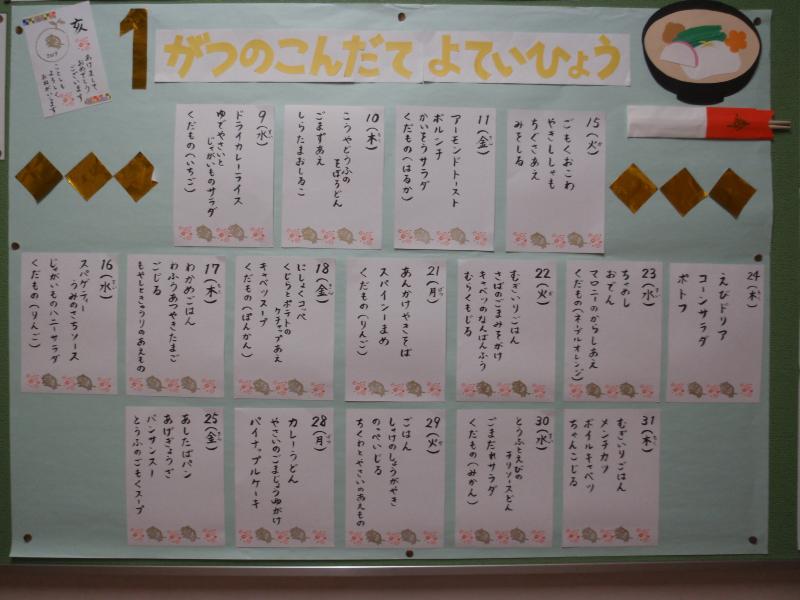 亥
2019
あけまして
おめでとう
ございます
ことしも
よろしく
おねがいします
1がつのこんだて よていひょう
9(水)
ドライカレーライス
ゆでやさいと
じゃがいものサラダ
くだもの(いちご)
10(木)
こうやどうふの
そぼろどん
ごまずあえ
しらたまおしるこ
11(金)
アーモンドトースト
ボルシチ
かいそうサラダ
くだもの(はるか)
15(火)
ごもくおこわ
やきししゃも
ちぐさあえ
みそしる
16(水)
スパゲティー
うみのさちソース
じゃがいものハニーサラダ
くだもの(りんご)
17(木)
わかめごはん
わふうあつやきたまご
ごじる
もやしときゅうりのあえもの
18(金)
にしょくコッペ
くじらとポテトの
ケチャップあえ
キャベツスープ
くだもの(ぽんかん)
21(月)
あんかけやきそば
スパイシーまめ
くだもの(りんご)
22(火)
むぎいりごはん
さばのごまみそがけ
キャベツのなんばんふう
むらくもじる
23(水)
ちゃめし
おでん
マロニーのからしあえ
くだもの(ネーブルオレンジ)
24(木)
えびドリア
コーンサラダ
ポトフ
25(金)
あしたばパン
あげぎょうざ
バンサンスー
とうふのごもくスープ
28(月)
カレーうどん
やさいのごまじょうゆがけ
パイナップルケーキ
29(火)
ごはん
しゃけのしょうがやき
のっぺいじる
ちくわとやさいのあえもの
30(水)
とうふとえびの
チリソースどん
ごまだれサラダ
くだもの(みかん)
31(木)
むぎいりごはん
メンチカツ
ボイルキャベツ
ちゃんこじる